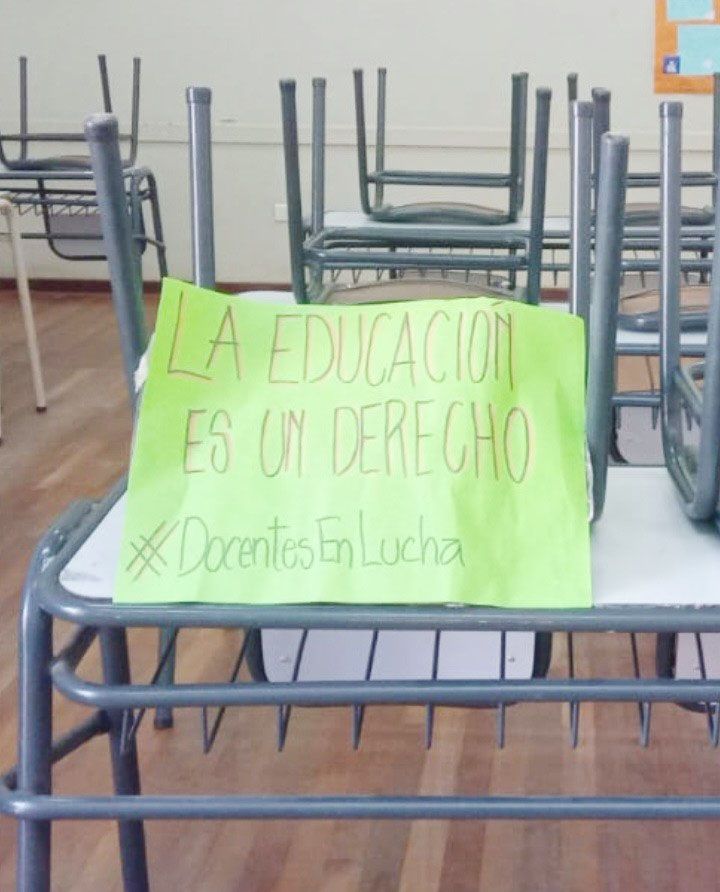 LA EDUCACIÓN
ES UN DERECHO
#DocentesEnLucha